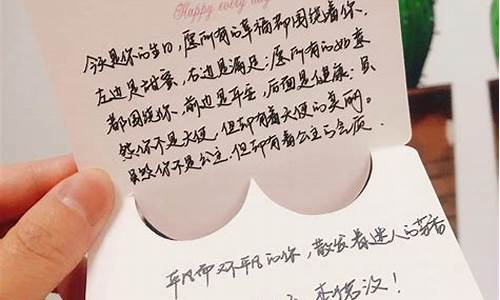 Happy every day
今天是你的生日，愿所有的幸福都围绕着你，
左边是甜蜜，右边是满足；愿所有的如意
都围绕你，前边是平安，后面是健康；虽
然你不是天使，但却有着天使的美丽。
虽然你不是公主，但却有着公主的气质。
平凡而又不平凡的你，散发着迷人的芳香
！